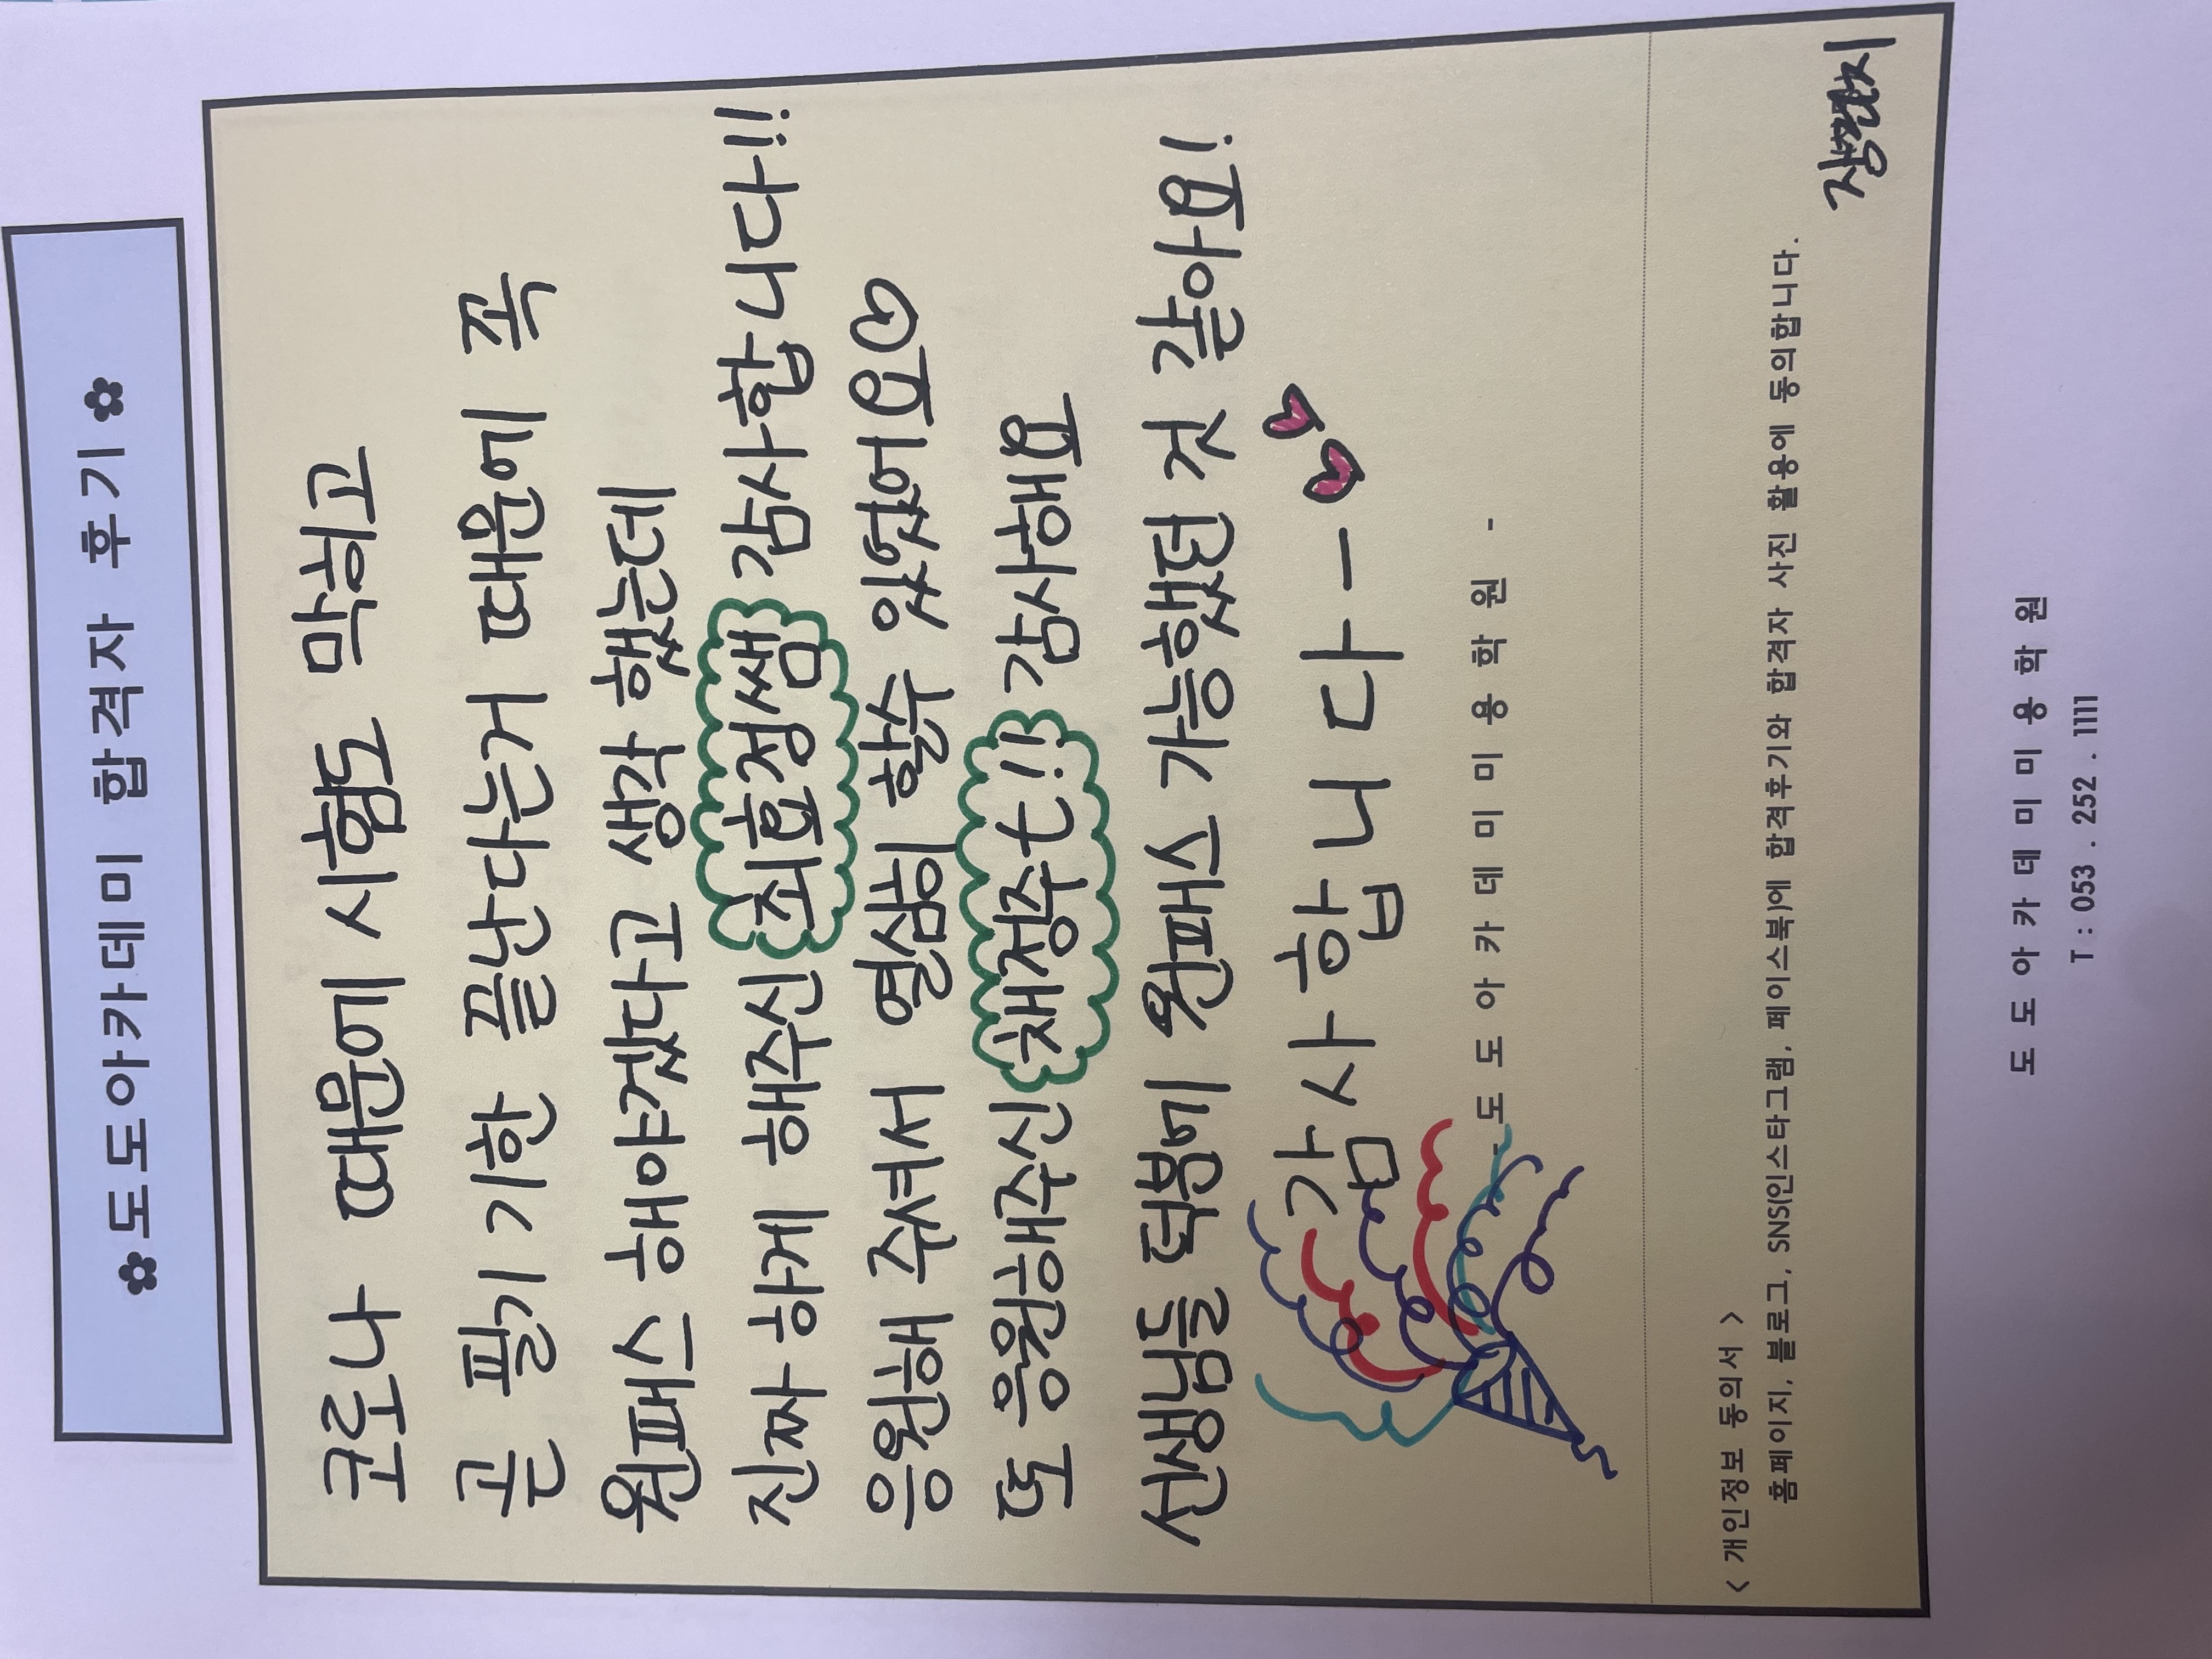 ✿도도아카데미 합격자 후기✿
코로나 때문에 시험도 막히고
곧 필기 기한 끝난다는거 때문에 꼭
원패스 해야겠다고 생각 했는데
진짜 하게 해주신 최효정쌤 감사합니다!!
응원해 주셔서 열심히 할수 있었어요♡
또 응원해주신 채정수t!! 감사해요
선생님들 덕분에 원패스 가능했던 것 같아요!
감사합니다-
- 도도아카데미미용학원 -
< 개인정보 동의서 >
홈페이지, 블로그, SNS(인스타그램, 페이스북)에 합격후기와 합격자 사진 활용에 동의합니다.
도도아카데미미용학원
T : 053 . 252 . 1111